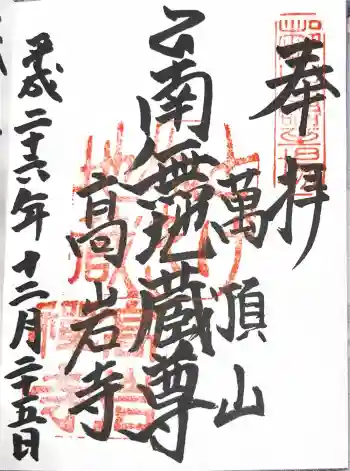 奉拝
萬頂山
南無地蔵尊
高岩寺
平成二十六年十二月二十五日